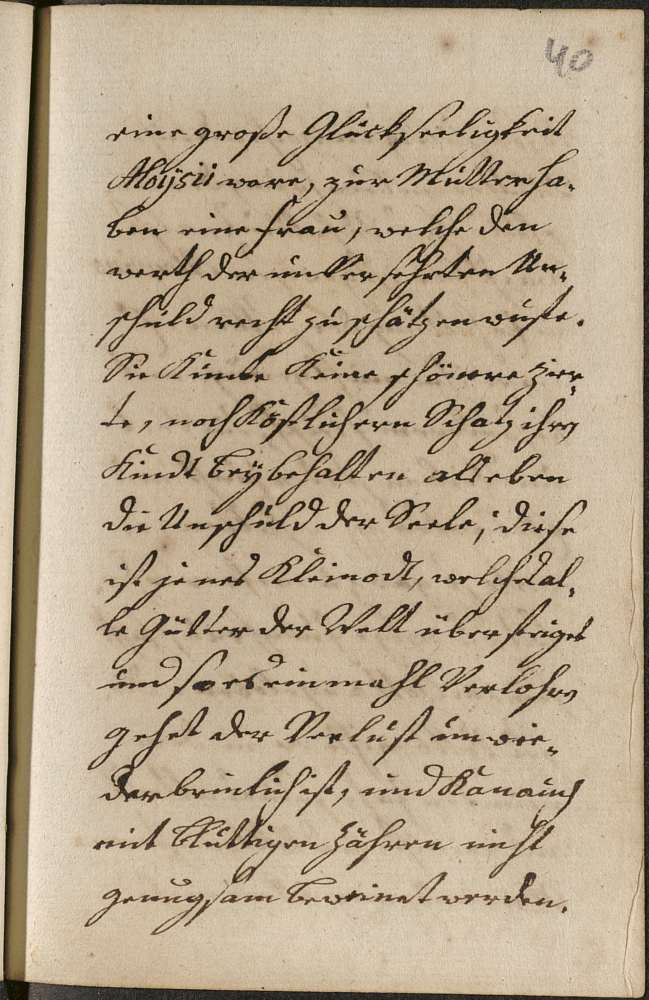 40
eine große Glückseeligkeit
Aloÿsii ware, zur Mutter ha-
ben eine frau, welche den
werth der unversehrten Un-
schuld recht zu schätzen wuste.
Sie kunte keine schönere zier-
te, noch köstlichern Schatz ihrem
Kindt beybehalten als eben
die Unschuld der Seele; diese
ist jenes Kleinodt, welches al-
le Gütter der Welt übersteiget
und so es einmahl Verlohren
gehet der Verlust unwie-
derbrinlich ist, und kan auch
mit bluttigen Zähren nicht
genugsam beweinet werden.